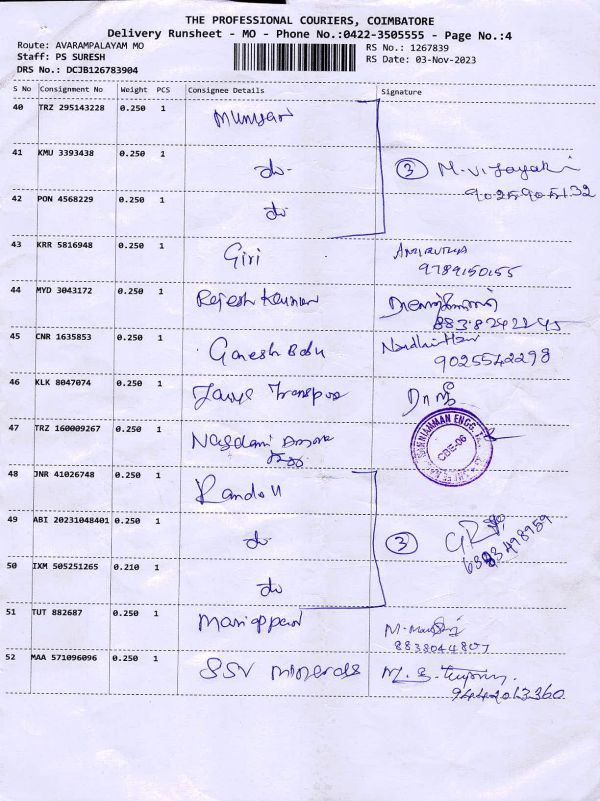 THE PROFESSIONAL COURIERS, COIMBATORE
Delivery Runsheet - MO - Phone No.:0422-3505555 - Page No.:4
Route: AVARAMPALAYAM MO
RS No.: 1267839
Staff: PS SURESH
RS Date: 03-Nov-2023
DRS No.: DCJB126783904
S No Consignment No Weight PCS Consignee Details Signature
40 TRZ 295143228 0.250 1
41 KMU 3393438 0.250 1 do- 3
9025905132
42 PON 4568229 0.250 1 do-
43 KRR 5816948 0.250 1 Giri
9789150155
44 MYD 3043172 0.250 1 Rajesh Kumar
8838242245
45 CNR 1635853 0.250 1 Ganesh Babu
9025542298
46 KLK 8047074 0.250 1
47 TRZ 160009267 0.250 1
48 JNR 41026748 0.250 1
49 ABI 20231048401 0.250 1 do- 3
50 IXM 505251265 0.210 1 do-
51 TUT 882687 0.250 1 Mariappan
8838044807
52 MAA 571096096 0.250 1 SSV Minerals
9442013360